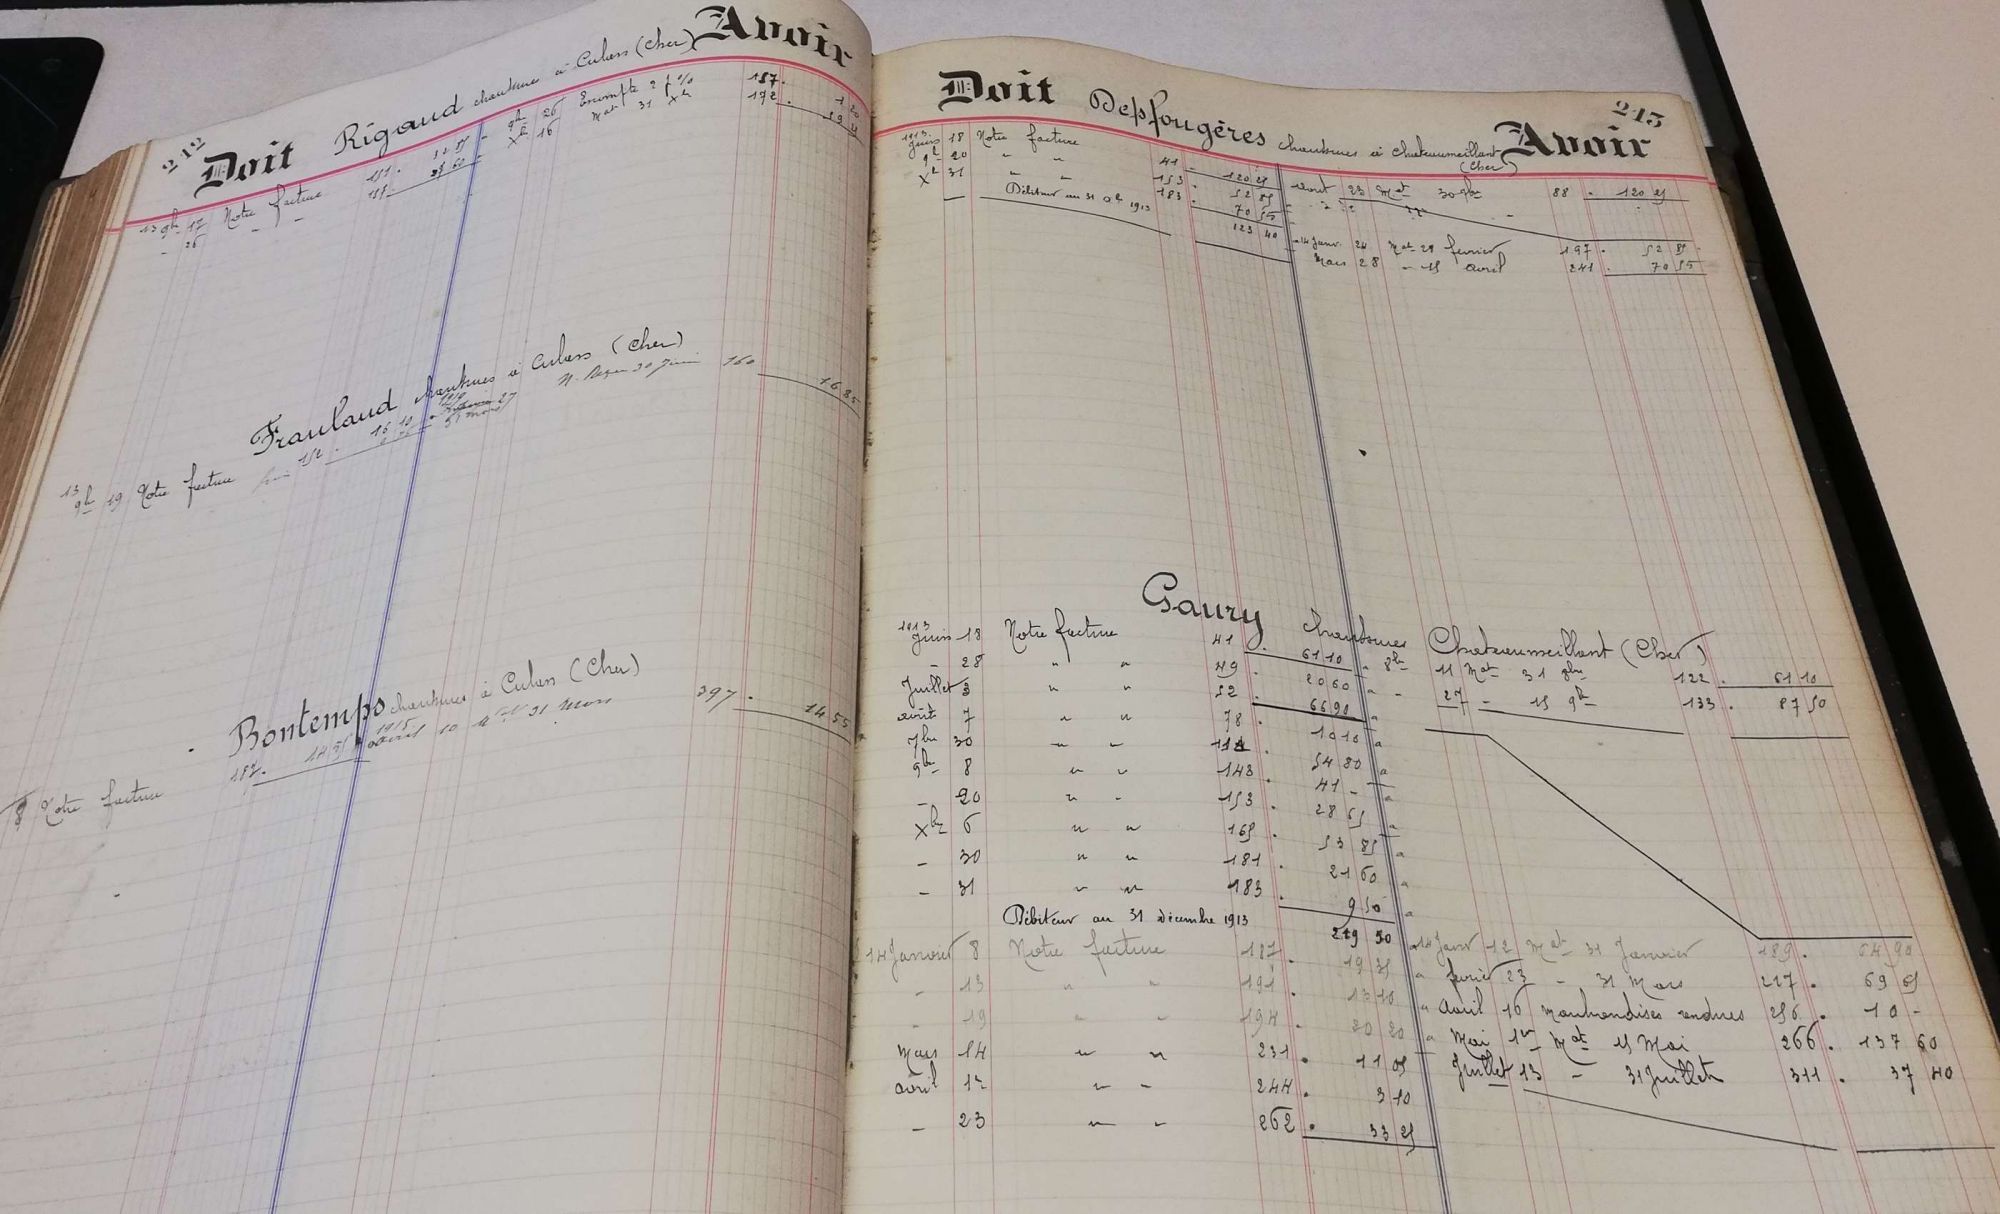 242
Doit Rigaud à Culan (Cher) Avoir
13 9b 17 Notre facture 151. 9b 26 Escompte 2 f % 187. 1 20
26 " " Xb 16 Mat 31 Xb 172.
à Culan (Cher)
13 9b 19 Notre facture 152. 16 10 30 Juin 160 16 85
Bontemps à Culan (Cher)
8 Notre facture 182. 14 55 1915 avril 10 31 Mars 397. 14 55
243
Doit Desfougères à Chateaumeillant (Cher) Avoir
1913 Juin 18 Notre facture 41. 120 25 Août 23 Mat 30 9bre 88. 120 25
9b 20 " " 153. 52 85
Xb 31 " " 183. 70 55
Débiteur au 31 Xb 1913 123 40
14 Janv. 24 Mat 28 février 197. 52 85
Mars 28 - 15 avril 241. 70 55
Gaury Chateaumeillant (Cher)
1913 Juin 18 Notre facture 41. 61 10 8b 11 Mat 31 8bre 122. 61 10
- 28 " " 49. 20 60 - 27 - 15 9b 133. 87 50
Juillet 3 " " 52. 66 90
août 7 " " 78. 10 10
7bre 30 " " 114. 54 80
9b 8 " " 143. 41 -
- 20 " " 153. 28 65
Xb 6 " " 165. 53 85
- 30 " " 181. 21 60
- 31 " " 183. 9 50
Débiteur au 31 décembre 1913 219 50
14 Janvier 8 Notre facture 187. 19 35 14 Janv 12 Mat 31 Janvier 189. 64 90
- 13 " " 191. 13 10 février 23 - 31 Mars 217. 69 65
- 19 " " 194. 20 20 avril 16 Marchandises rendues 256. 10 -
Mars 14 " " 231. 11 05 Mai 1er Mat 15 Mai 266. 137 60
avril 12 " " 244. 3 10 Juillet 13 - 31 Juillet 311. 37 40
- 23 " " 262. 33 25